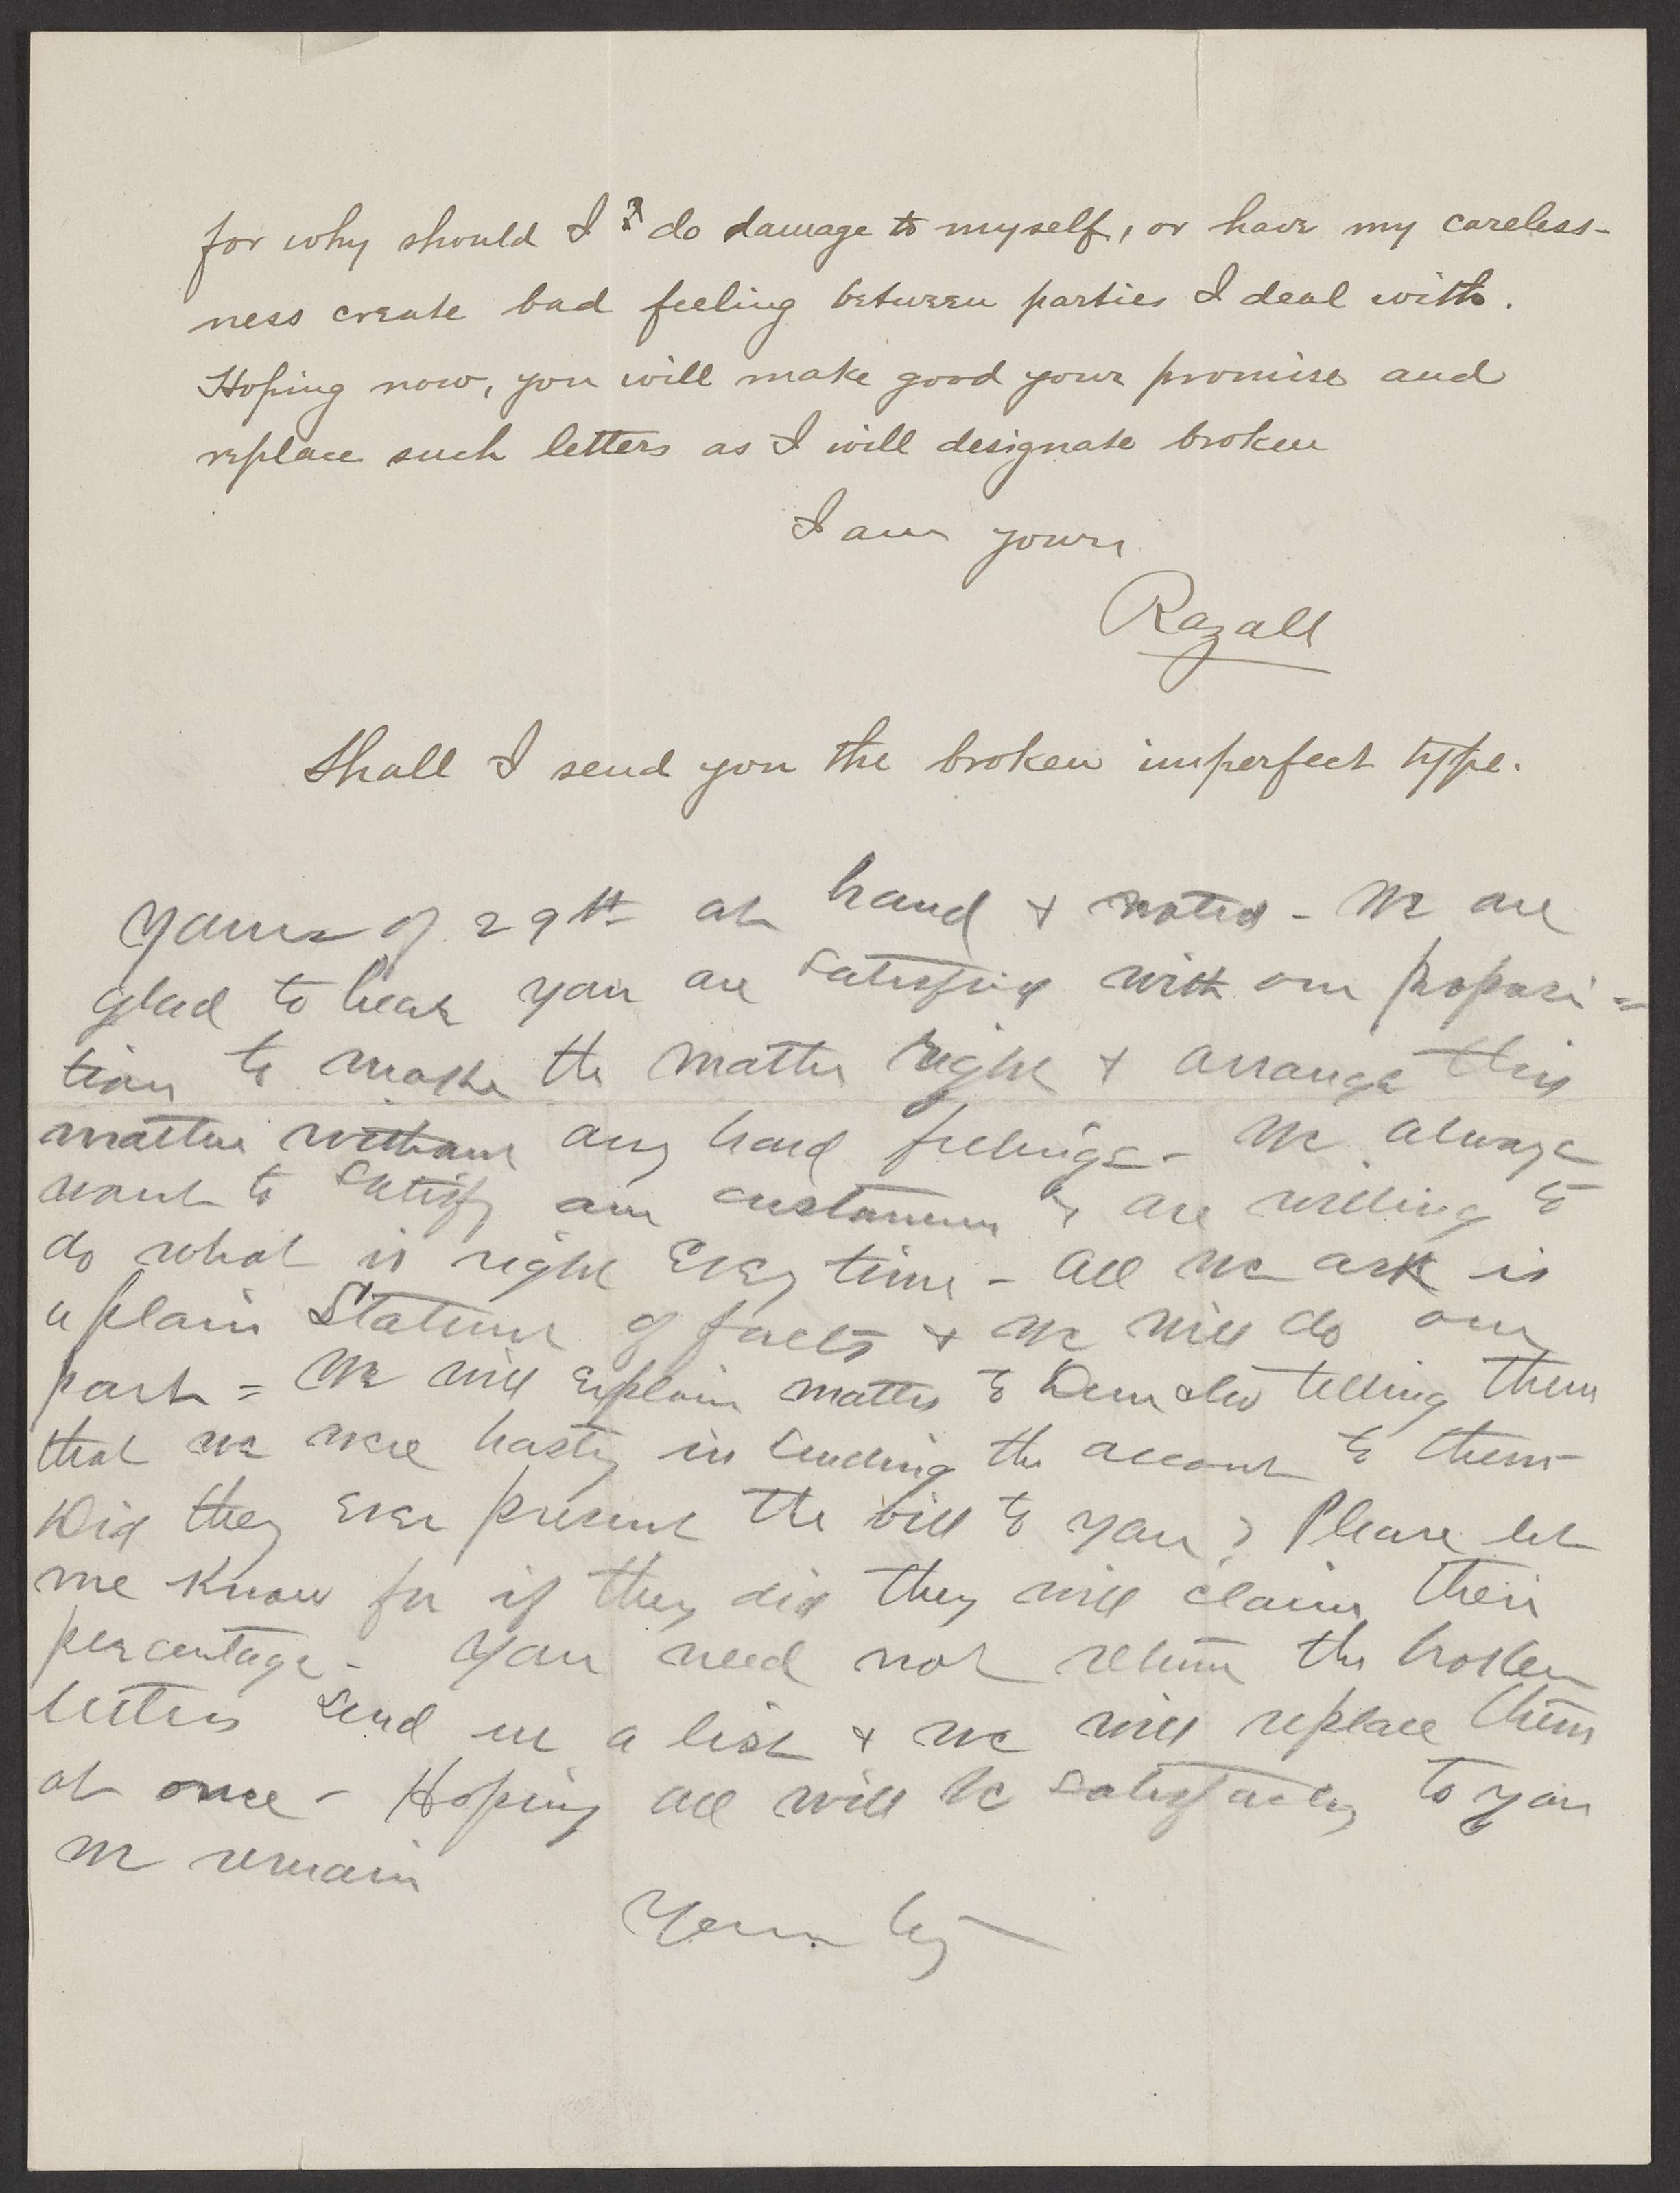 for why should I do damage to myself, or have my careless-
ness create bad feeling between parties I deal with.
Hoping now, you will make good your promise and
replace such letters as I will designate broken
I am yours
Razall
Shall I send you the broken imperfect type.
Yours of 29th at hand & noted - We are
glad to hear you are satisfied with our proposi=
tion to make the matter right & arrange this
matter without any hard feelings - We always
want to satisfy our customers & are willing to
do what is right every time - All we ask is
a plain Statement of facts & we will do our
part = We will explain matters to telling them
that we were hasty in sending the account to them -
Did they ever present the bill to you? Please let
me know for if they did they will claim their
percentage - You need not return the broken
letters send in a list & we will replace them
at once - Hoping all will be satisfactory to you
We remain
Yours